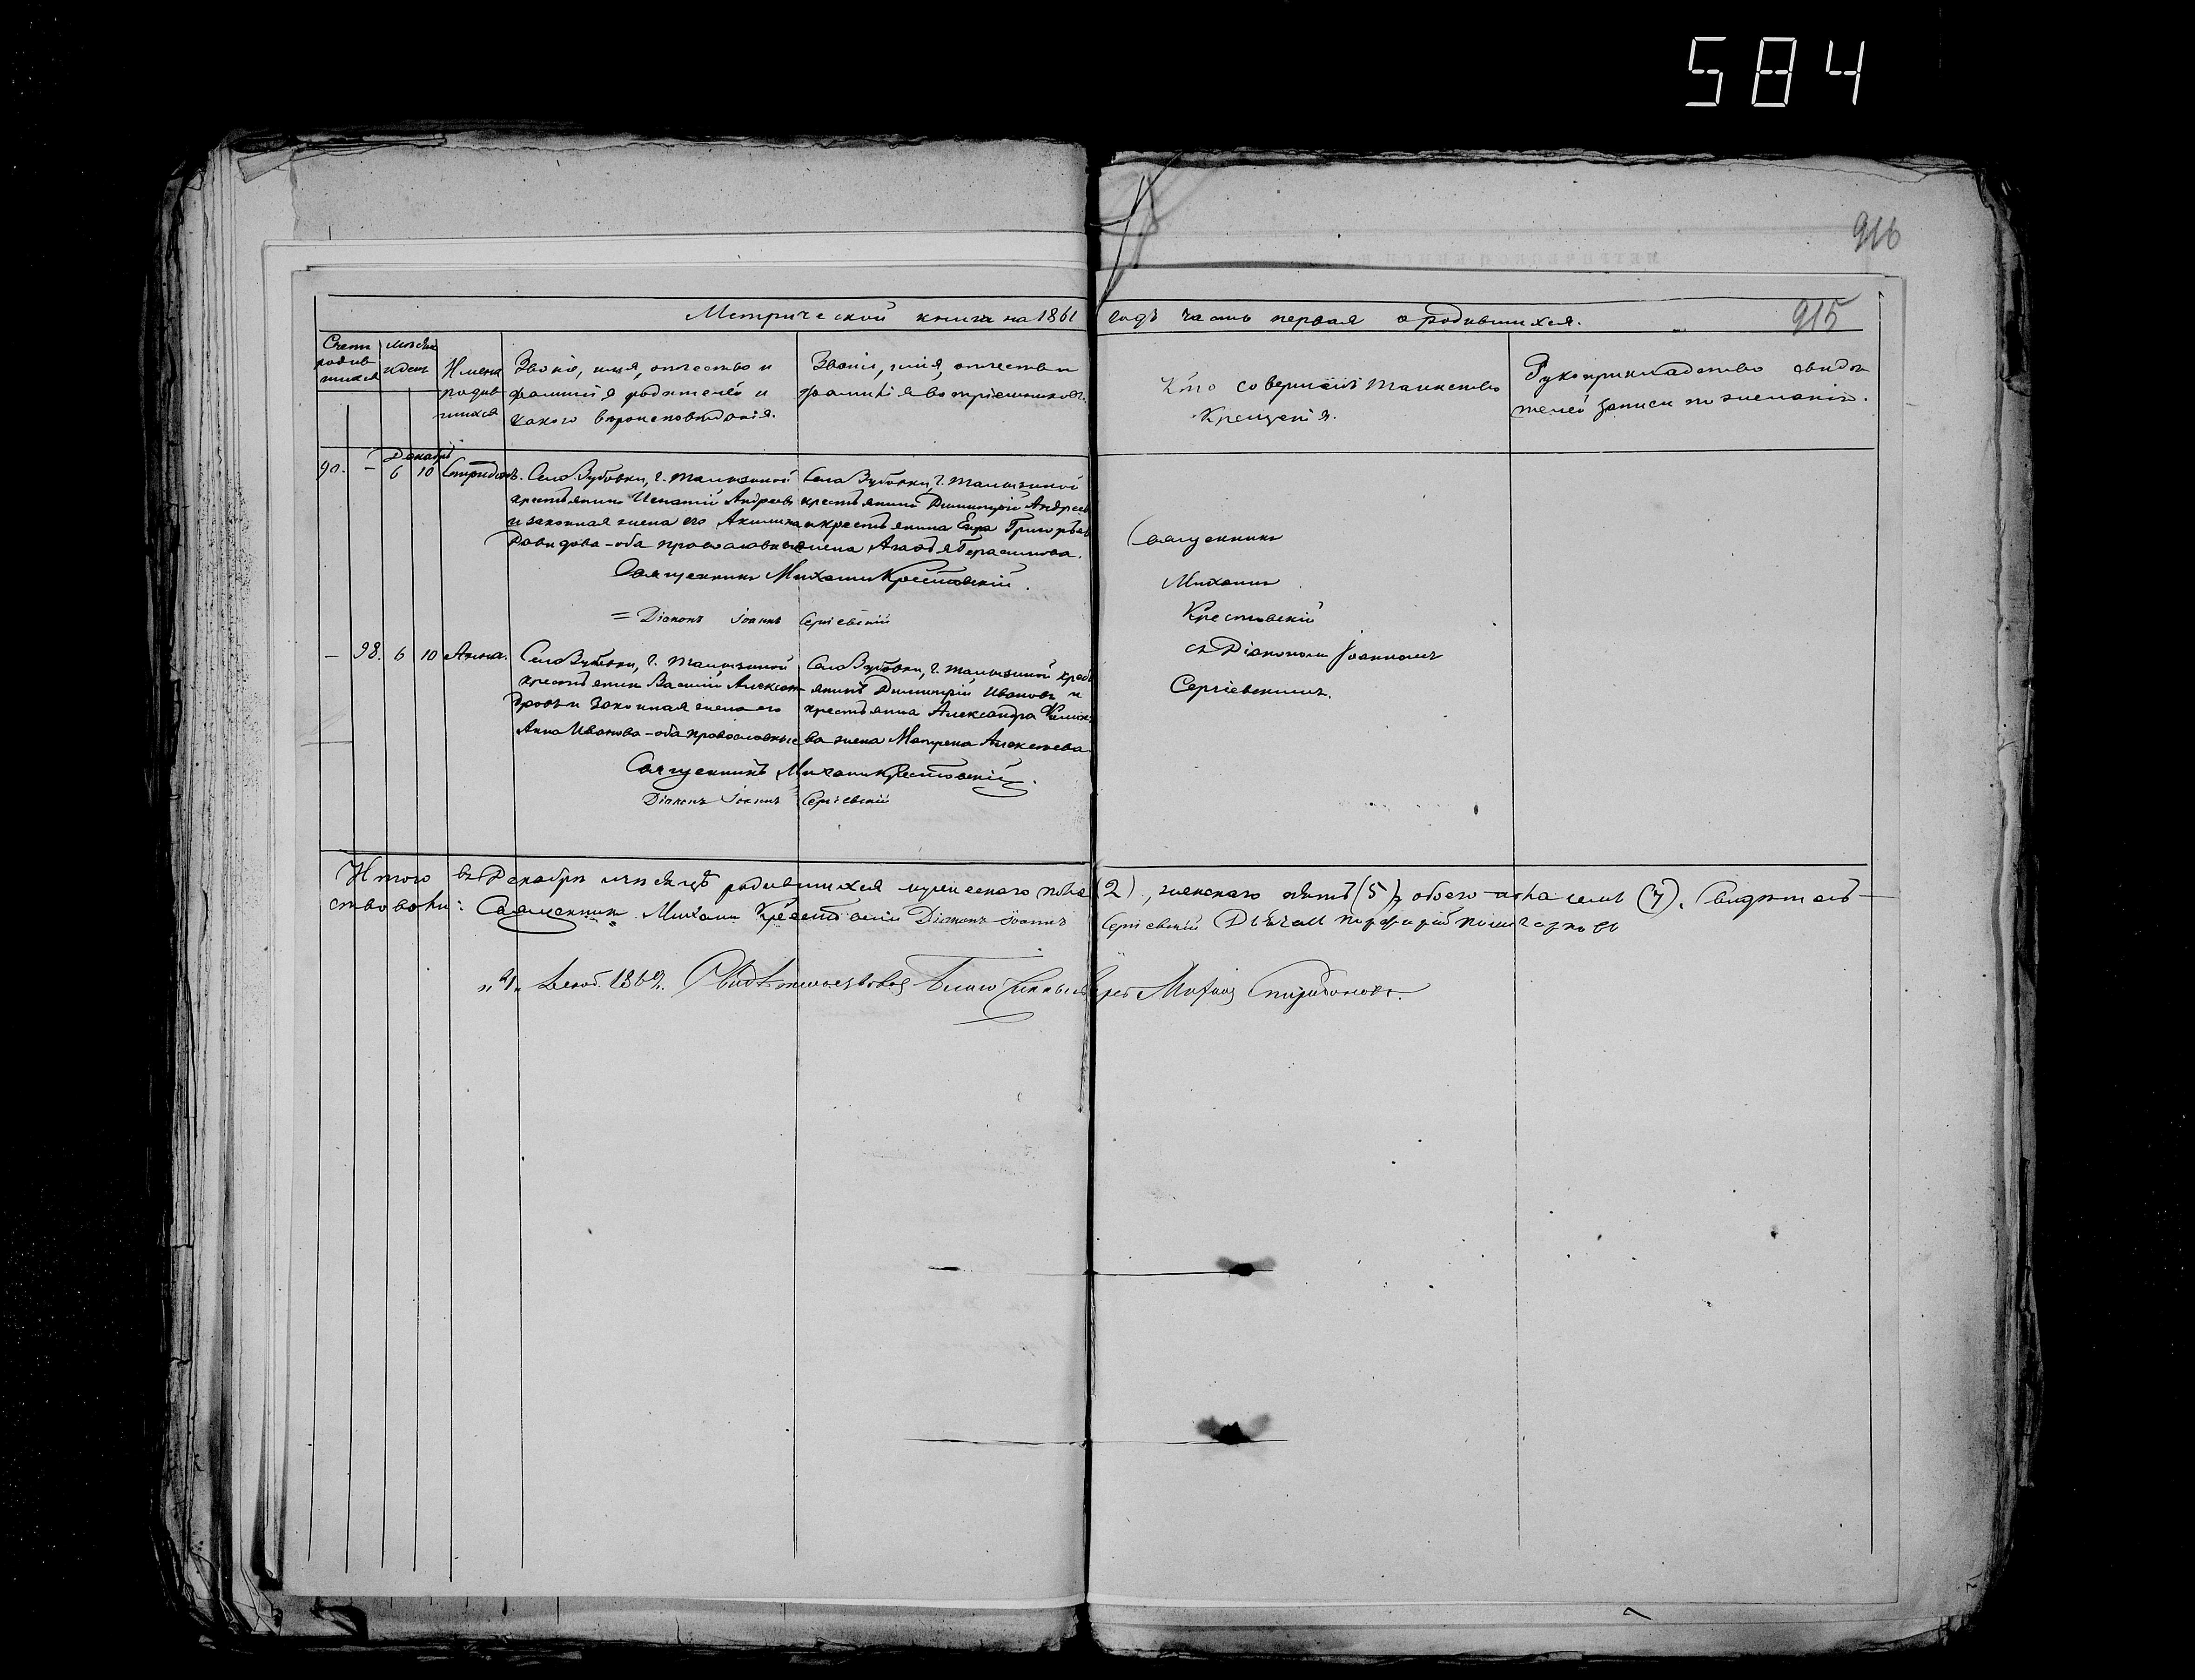 584
916
915
Метрической книги на 1861 годъ часть первая о родившихся.
Счетъ родив шихся
Имена родив шихся
Званіе, имя, отчество и фамилія родителей и какого вѣроисповѣданія.
Званіе, имя, отчество и фамилія воспріемниковъ.
Кто совершилъ таинство Крещенія.
Рукоприкладство свидѣ телей записи по желанію.
Декабрь
90. — 6 10 Спиридонъ.
Село Зубовки, г. Талызиной
крестьянинъ Игнатій Андреевъ
и законная жена его Акилина
Давидова – оба православные
Села Зубовки, г. Талызиной
крестьянинъ Димитрій Андреевъ
и крестьянина Григорьев
жена Агафья Герасимова.
Священникъ Михаилъ Крестовскій.
= Діаконъ Іоаннъ Сергіевскій
Священникъ
Михаилъ
Крестовскій
съ Діакономъ Іоанномъ
Сергіевскимъ.
— 98. 6 10 Анна.
Село Зубовки, г. Талызиной
крестьянин Василій Алексан
дровъ и законная жена его
Анна Иванова – оба православные
Села Зубовки, г. Талызиной крест
янинъ Димитрій Ивановъ и
крестьянина Александра
ва жена Матрена Алексѣева
Священникъ Михаилъ Крестовскій.
Діаконъ Іоаннъ Сергіевскій
Итого въ Декабрѣ мѣсяцѣ родившихся мужескаго пола (2), женскаго пять (5), обоего пола семь (7). Свидѣтель
ствовали: Священник Михаил Крестовскій Діаконъ Іоаннъ Сергіевскій Дьячекъ
1862. Свидѣтельствовалъ Благочинный Іерей Михаилъ Спиридоновъ.